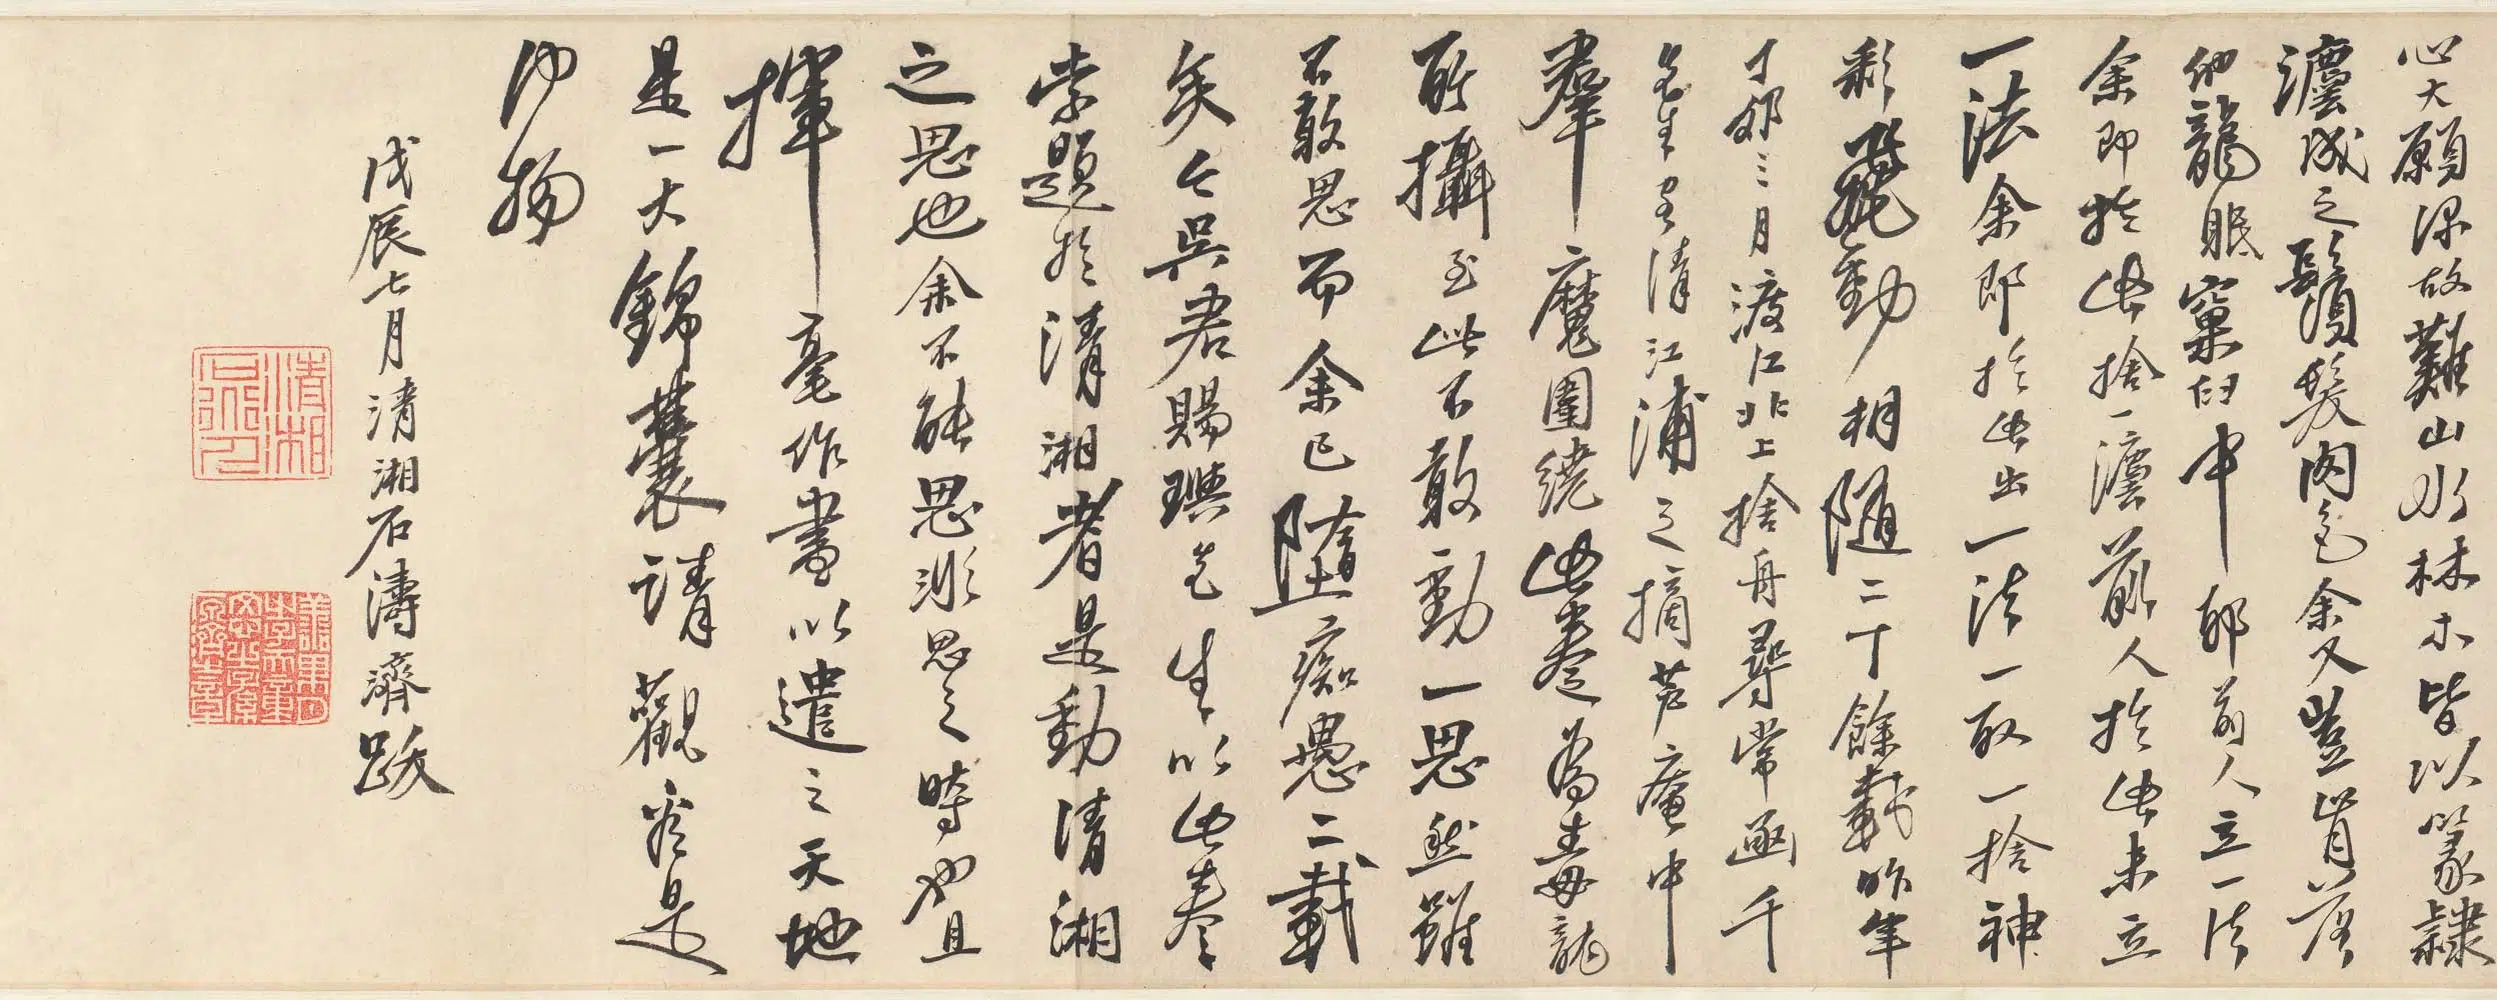 心大願深故難山水林木皆以篆隸
灋成之鬚髮内余又豈肯落
他龍眠窠臼中耶前人立一法
余即於此捨一灋前人於此未立
一法余即於此出一法一取一捨神
彩飛動相隨二十餘載昨年
丁卯三月渡江北上捨舟尋常函千
先生家清江浦之摘芦庵中
羣魔圍繞此卷為毒龍
所攝至此不敢動一思然雖
不敢思而余已墮痴愚二載
矣今吳君賜璵先生以此卷
索題於清湘者是動清湘
之思也余不能思非思之時也且
揮毫作書以遣之天地
是一大錦囊請觀看是
何物
戊辰七月清湘石濤濟跋
清湘